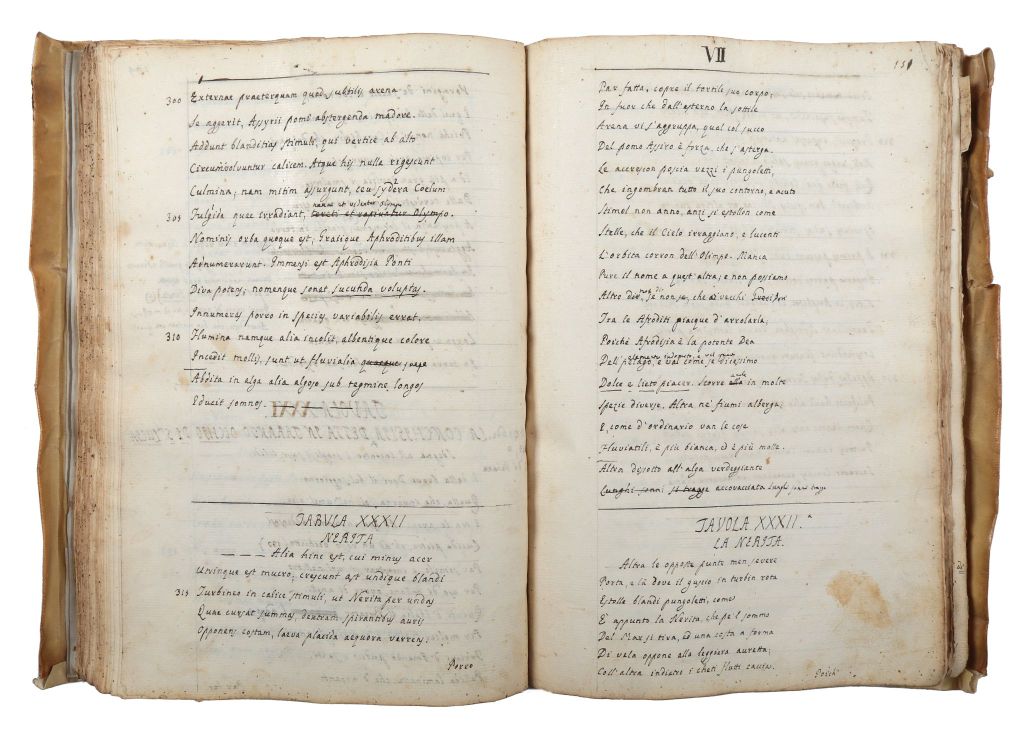 300 Externae praeterquam quod subtilis arena
Se aggerit, Assyrii pomi abstergenda madore.
Addunt blanditias stimuli, qui vertice ab alto
Circumvolvuntur calicem. Atque his nulla rigescunt
Culmina; nam mitim assurgunt, ceu sydera Coelum
namne et videntur Olympo
305 Fulgida quae irradiant, tereti et rapiuntur Olympo.
Nominis orba quoque est; Graiique Aphroditibus illam
Adnumerarunt. Immensi est Aphrodisia Ponti
Diva potens; nomenque sonat jucunda voluptas.
Innumeris porro in species variabilis errat.
310 Flumina namque alia incolit, albentique colore
Incedit mollis, sunt ut fluvialia quaeque saepe
Abdita in alga alia algoso sub tegmine longos
Educit somnos.
TABULA XXXII
NERITA
Alia hinc est, cui minus acer
Utrinque est mucro; crescunt ast undique blandi
315 Turbineo in calice stimuli, ut Nerita per undas
Quae cursat summas, dextram spirantibus auris
Opponens costam, laeva placida aequora verrens.
Porro
VII
151
Par fatta, copre il tortile suo corpo;
In fuor che dall'esterno la sottile
Arena vi s'aggruppa, qual col succo
Del pomo Assiro è forza, che s'asterga.
Le accrescon poscia vezzi i pungoletti,
Che ingombran tutto il suo contorno, e acuto
Stimol non anno, anzi si estollon come
Stelle, che il Cielo irraggiano, e lucenti
L'orbita corron dell'Olimpo. Manca
Pure il nome a quest'altra; e non possiamo
Altro dir, se non se, che i vecchi Greci
Tra le Afroditi piacque d'arrolarla;
Perchè Afrodisia è la potente Dea
Del pelago, e val come se dicessimo
Dolce e lieto piacer. Scorre in molte
Spezie diverse. Altra ne' fiumi alberga;
E, come d'ordinario van le cose
Fluviatili, è più bianca, ed è più molle.
Altra disotto all'alga verdeggiante
Lunghi sonni si tragge accovacciata lunghi sonni tragge
TAVOLA XXXII.
LA NERITA.
Altra le opposte punte men severe
Porta, e là dove il guscio in turbin rota
Estolle blandi pungoletti, come
E' appunto la Nerita, che pe'l sommo
Del Mar si tira, ed una costa a forma
Di vela oppone alla leggiera auretta;
Coll'altra indietro i cheti flutti caccia.
Perch'